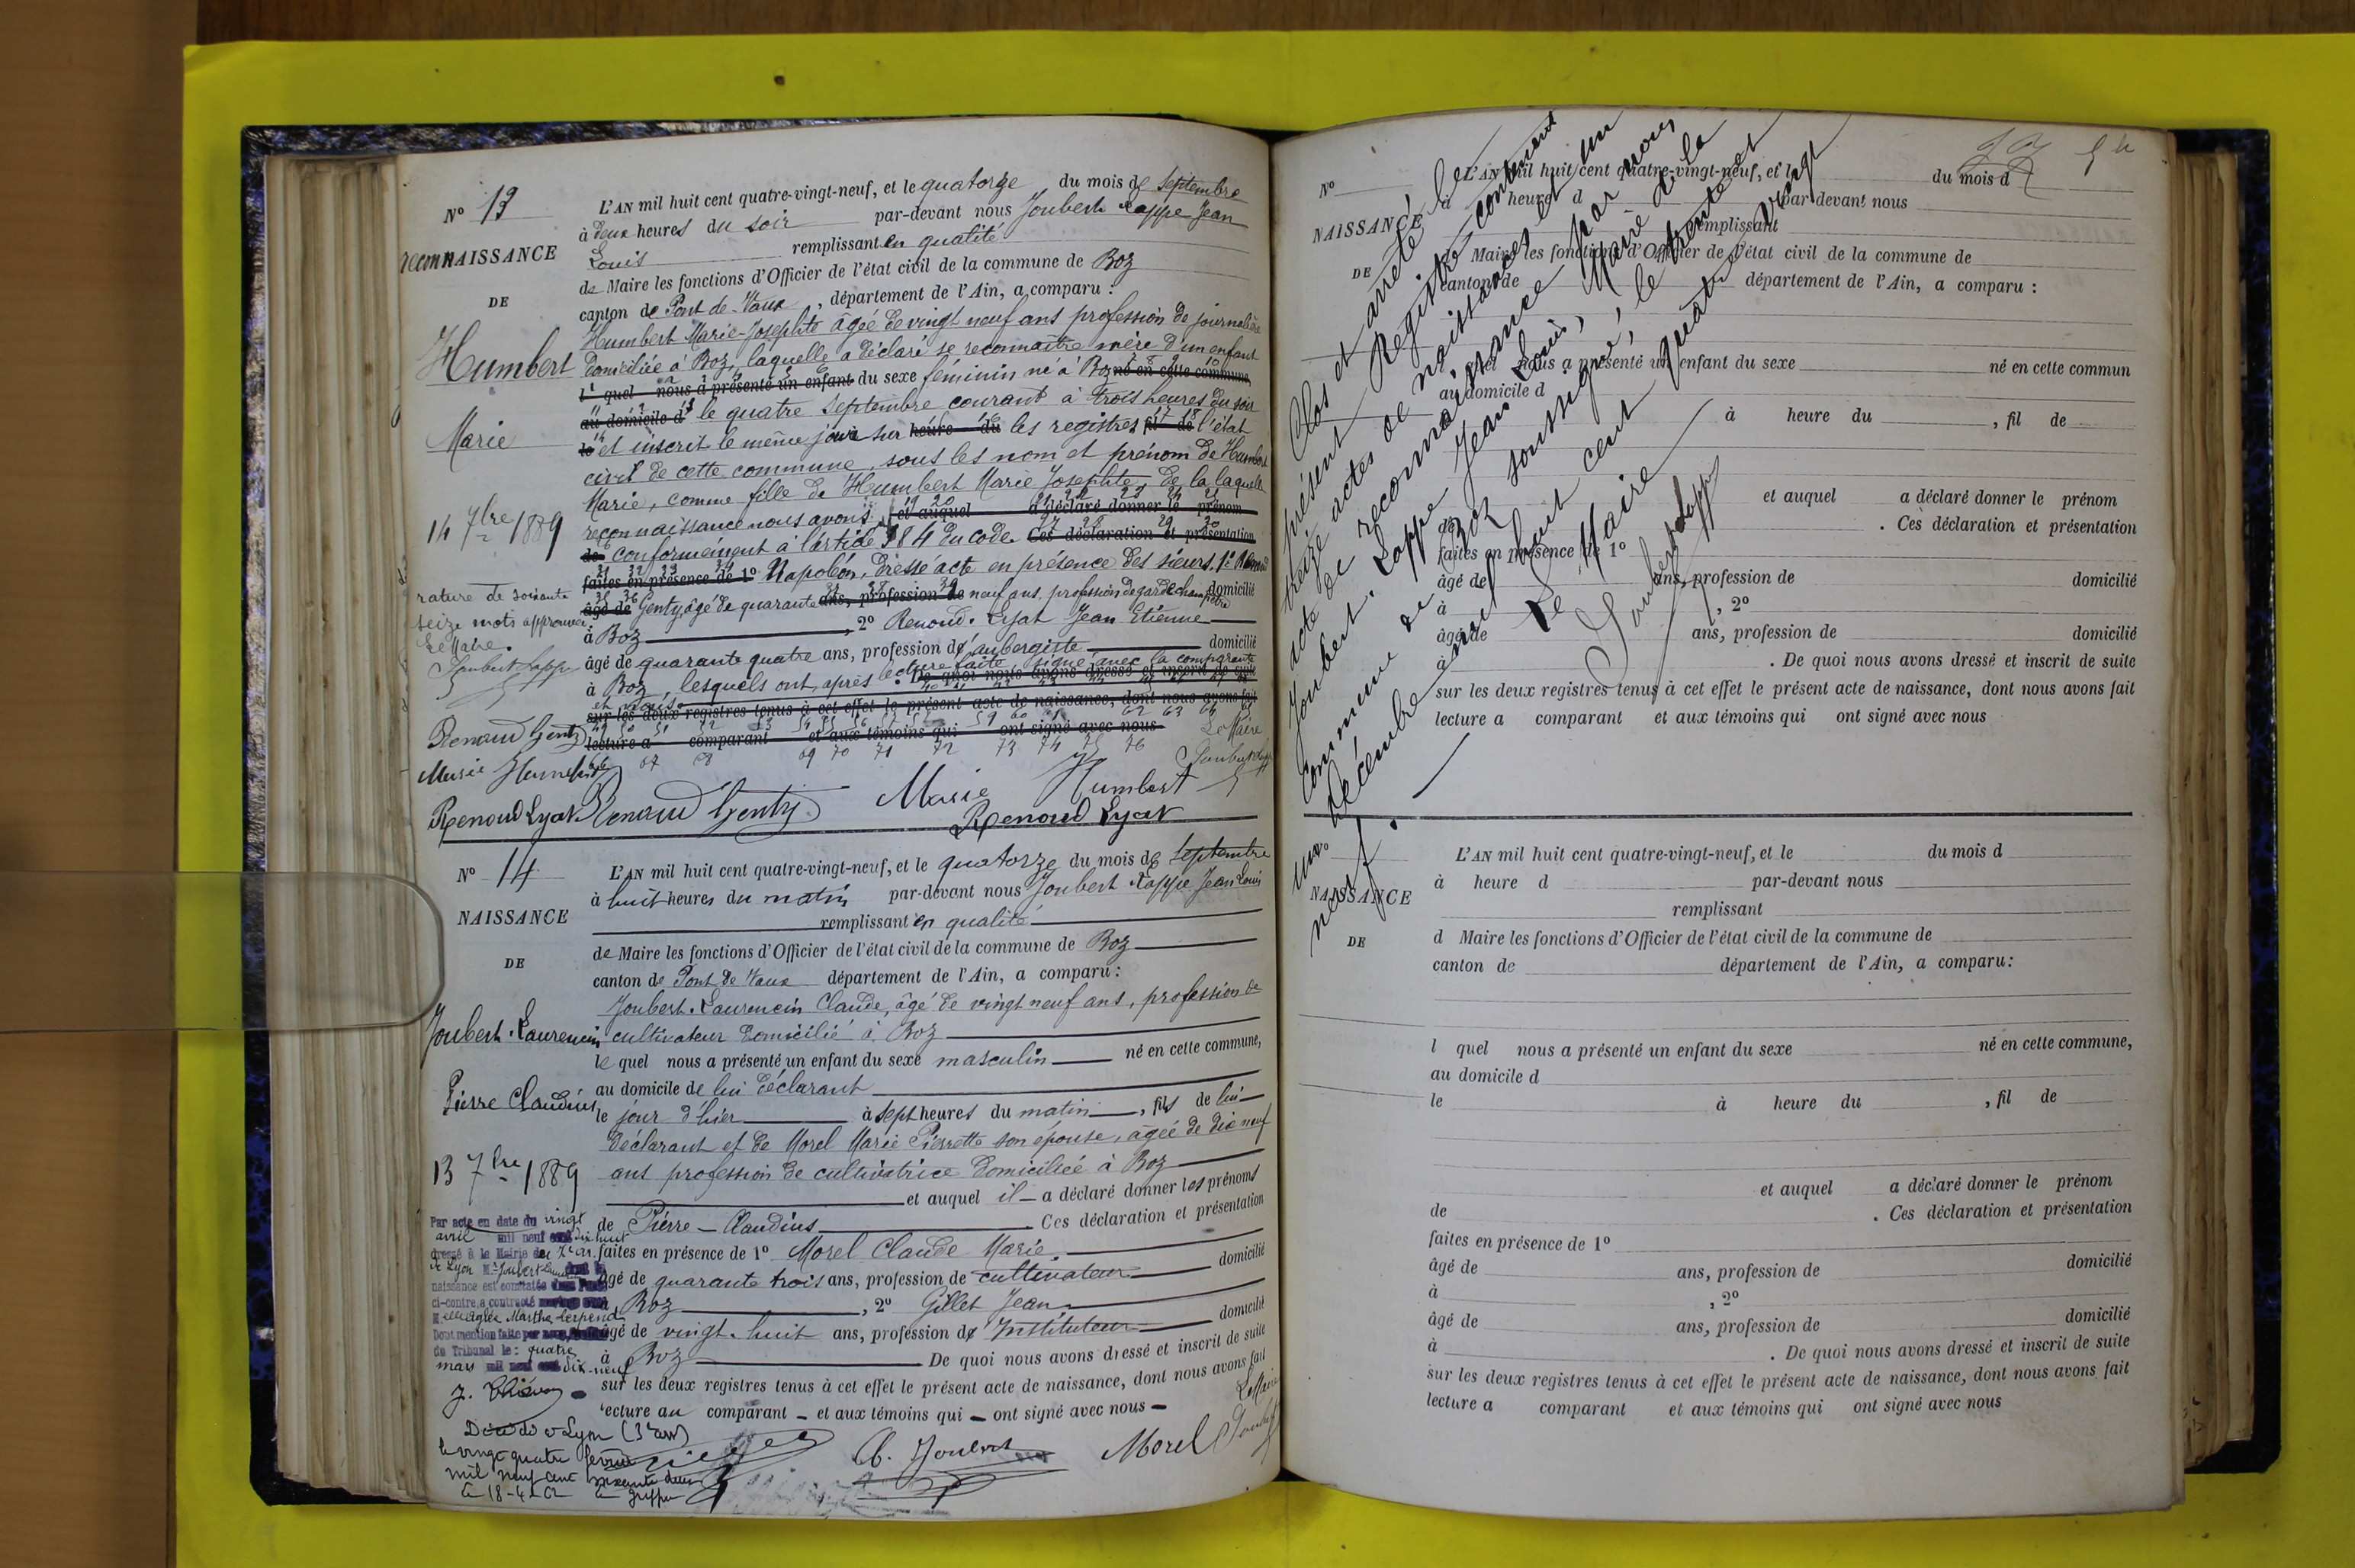 N° 13
reconNAISSANCE
DE
Humbert
Marie
14 7bre 1889
rature de soixante
seize mots approuvée.
Le Maire.
Joubert Lappe
Renaud Genty
Marie Humbert
Renoud Lyat
L'AN mil huit cent quatre-vingt-neuf, et le quatorze du mois de Septembre
à deux heures du soir par-devant nous Joubert Lappe Jean
Louis remplissant en qualité
de Maire les fonctions d'Officier de l'état civil de la commune de Boz
canton de Pont de Vaux, département de l'Ain, a comparu :
Humbert Marie-Josephte âgée de vingt neuf ans profession de journalière
domiciliée à Boz, laquelle a déclaré se reconnaître mère d'un enfant
l quel nous a présenté un enfant du sexe féminin né à Boz né en cette commune,
au domicile d le quatre Septembre courant à trois heures du soir
le et inscrit le même jour sur heure du les registres fil de l'état
civil de cette commune, sous les nom et prénom de Humbert
Marie, comme fille de Humbert Marie Josephte, de la laquelle
reconnaissance nous avons, et auquel a déclaré donner le prénom
de conformément à l'article 384 du code. Ces déclaration et présentation
faites en présence de 1° Napoléon, dressé acte en présence des sieurs, 1° Renaud
âgé de Genty, âgé de quarante ans, profession de neuf ans, profession de garde champêtre domicilié
à Boz, 2° Renoud-Lyat Jean Etienne
âgé de quarante quatre ans, profession d'aubergiste domicilié
à Boz, lesquels ont, après lecture faite, signé avec la comparante
et nous. De quoi nous avons dressé et inscrit de suite
sur les deux registres tenus à cet effet le présent acte de naissance, dont nous avons fait
lecture a comparant et aux témoins qui ont signé avec nous
Le Maire
Joubert Lappe
Renaud Genty
Marie Humbert
Renoud Lyat
N° 14
NAISSANCE
DE
Joubert-Laurencin
Pierre Claudius
13 7bre 1889
Par acte en date du vingt
avril mil neuf cent dix huit
dressé à la Mairie du 7e ar.
de Lyon M. Joubert Laurencin dont la
naissance est constatée dans l'acte
ci-contre, a contracté mariage avec
Melle Aglée Marthe Serpend
Dont mention faite par nous,
du Tribunal le : quatre
mars mil neuf cent dix-neuf
Décédé à Lyon (3e arr)
le vingt quatre février
mil neuf cent soixante deux
le 18-4-62 le greffier
L'AN mil huit cent quatre-vingt-neuf, et le quatorze du mois de Septembre
à huit heures du matin par-devant nous Joubert Lappe Jean Louis
remplissant en qualité
de Maire les fonctions d'Officier de l'état civil de la commune de Boz
canton de Pont de Vaux département de l'Ain, a comparu :
Joubert-Laurencin Claude, âgé de vingt neuf ans, profession de
cultivateur domicilié à Boz
le quel nous a présenté un enfant du sexe masculin né en cette commune,
au domicile de lui déclarant
le jour d'hier à sept heures du matin, fils de lui
déclarant et de Morel Marie Pierrette son épouse, âgée de dix neuf
ans profession de cultivatrice domiciliée à Boz
et auquel il a déclaré donner les prénoms
de Pierre-Claudius. Ces déclaration et présentation
faites en présence de 1° Morel Claude Marie
âgé de quarante trois ans, profession de cultivateur domicilié
à Boz, 2° Gillet Jean
âgé de vingt-huit ans, profession d'Instituteur domicilié
à Boz De quoi nous avons dressé et inscrit de suite
sur les deux registres tenus à cet effet le présent acte de naissance, dont nous avons fait
lecture au comparant et aux témoins qui ont signé avec nous
Le Maire
Cl. Joubert
Morel
Joubert
Clos et arrêté le
présent Registre contenant
treize actes de naissances et un
acte de reconnaissance par nous
Joubert-Lappe Jean Louis, Maire de la
commune de Boz soussigné, le trente et
un décembre mil huit cent quatre vingt
neuf.
Le Maire
Joubert Lappe
N°
NAISSANCE
DE
L'AN mil huit cent quatre-vingt-neuf, et l du mois d
à heure d par-devant nous
remplissant
d Maire les fonctions d'Officier de l'état civil de la commune de
canton de département de l'Ain, a comparu :
l quel nous a présenté un enfant du sexe né en cette commun
au domicile d
à heure du , fil de
et auquel a déclaré donner le prénom
de . Ces déclaration et présentation
faites en présence de 1°
âgé de ans, profession de domicilié
à , 2°
âgé de ans, profession de domicilié
à . De quoi nous avons dressé et inscrit de suite
sur les deux registres tenus à cet effet le présent acte de naissance, dont nous avons fait
lecture a comparant et aux témoins qui ont signé avec nous
N°
NAISSANCE
DE
L'AN mil huit cent quatre-vingt-neuf, et le du mois d
à heure d par-devant nous
remplissant
d Maire les fonctions d'Officier de l'état civil de la commune de
canton de département de l'Ain, a comparu :
l quel nous a présenté un enfant du sexe né en cette commune,
au domicile d
le à heure du , fil de
et auquel a déclaré donner le prénom
de . Ces déclaration et présentation
faites en présence de 1°
âgé de ans, profession de domicilié
à , 2°
âgé de ans, profession de domicilié
à . De quoi nous avons dressé et inscrit de suite
sur les deux registres tenus à cet effet le présent acte de naissance, dont nous avons fait
lecture a comparant et aux témoins qui ont signé avec nous